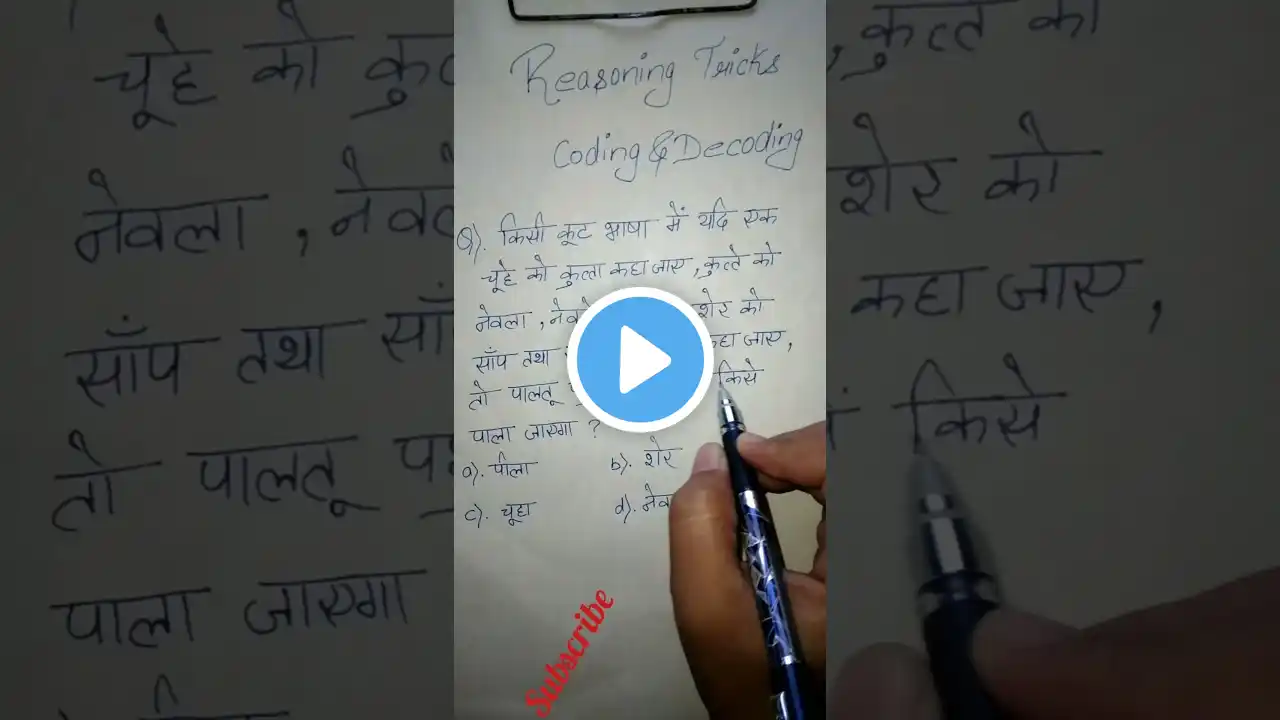 Reasoning Tricks
Coding & Decoding
Q). किसी कूट भाषा में यदि एक
चूहे को कुत्ता कहा जाए, कुत्ते को
नेवला, शेर को
साँप तथा कहा जाए,
तो पालतू किसे
पाला जाएगा ?
a). पीला b). शेर
c). चूहा d).
Subscribe